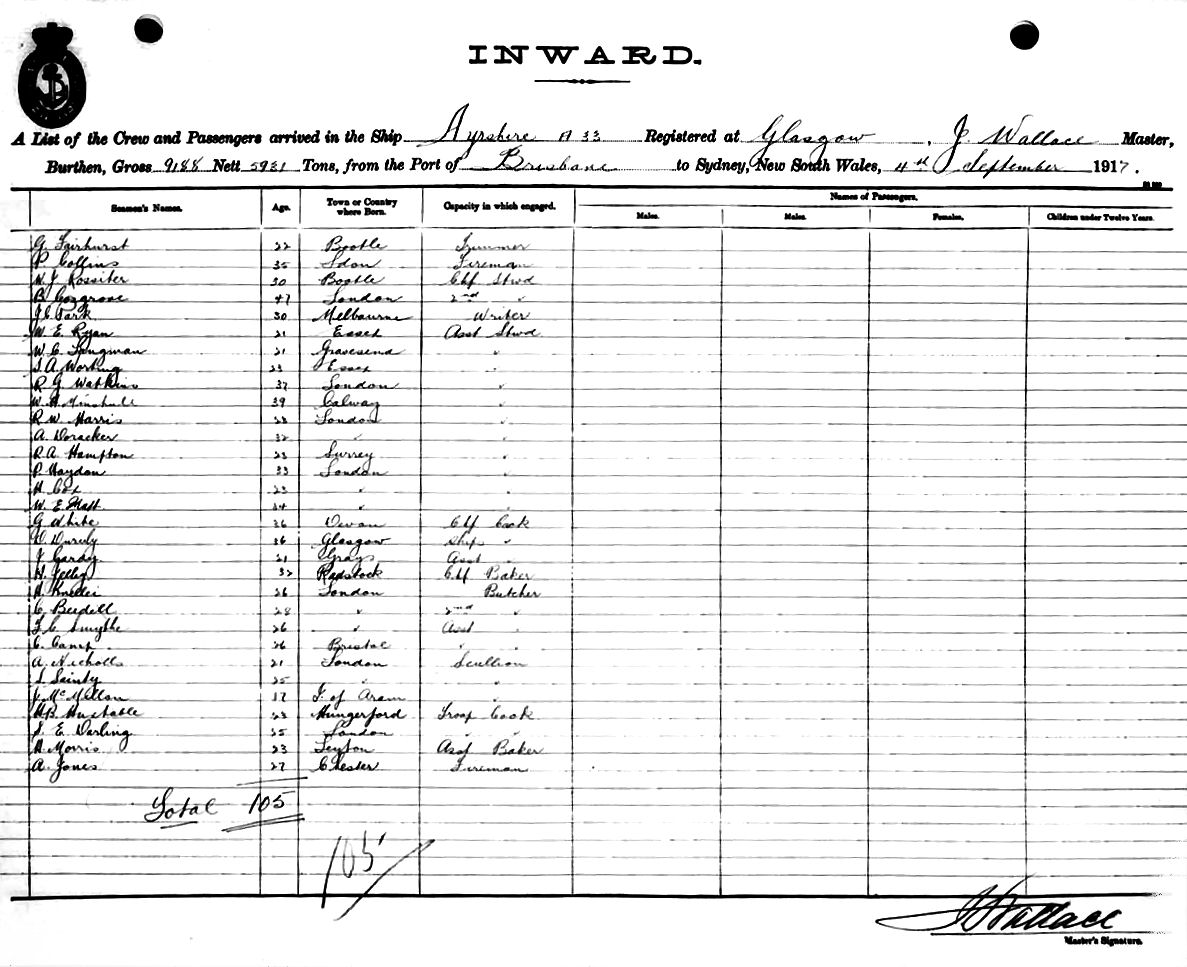 INWARD.
A List of the Crew and Passengers arrived in the Ship Ayrshire A 33 Registered at Glasgow, J. Wallace Master,
Burthen, Gross 9188 Nett 5931 Tons, from the Port of Brisbane to Sydney, New South Wales, 4th September 1917.
Seamen's Names. Age. Town or Country where Born. Capacity in which engaged. Names of Passengers.
Males. Males. Females. Children under Twelve Years.
G. Fairhurst 22 Bootle Trimmer
P. Collins 35 Ldon Fireman
W. J. Rossiter 30 Bootle Chf Stwd
B. Cosgrove 47 London 2nd "
J. C. Park 30 Melbourne Writer
W. E. Ryan 21 Essex Asst Stwd
W. C. Langman 21 Gravesend "
23 Essex "
R G Watkins 37 London "
W. H. Minshull 39 Galway "
R. W. Harris 28 London "
A. Doracker 32 " "
R. A. Hampton 23 Surrey "
P. Haydon 33 London "
H. Cox 23 " "
W. E. 24 " "
G. White 36 Devon Chf Cook
36 Glasgow Ships "
J. Gardy 21 Grays Asst "
H. Jelley 32 Radstock Chf Baker
26 London Butcher
C. Beedell 28 " 2nd "
F. C. Smythe 26 " Asst "
C. Camp 26 Bristol " "
A. Nicholls 21 London Scullion
S. Sainty 25 " "
J. McMillan 37 I. of Aran "
H. B. Huxtable 23 Hungerford Troop Cook
S. E. Darling 25 London " "
H. Morris 23 Leyton Asst Baker
A. Jones 27 Chester Fireman
Total 105
105
J Wallace
Master's Signature.